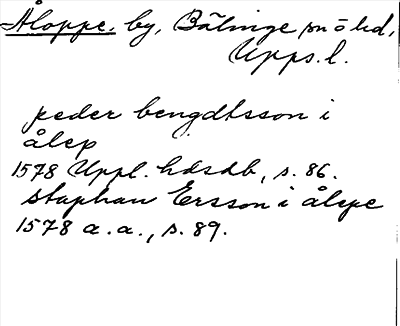 Åloppe. by, Bälinge sn ö hd,
Upps. l.
peder bengdtsson i
ålep
1578 Uppl. hdsdb, s. 86.
staphan Ersson i ålepe
1578 a. a., s. 89.